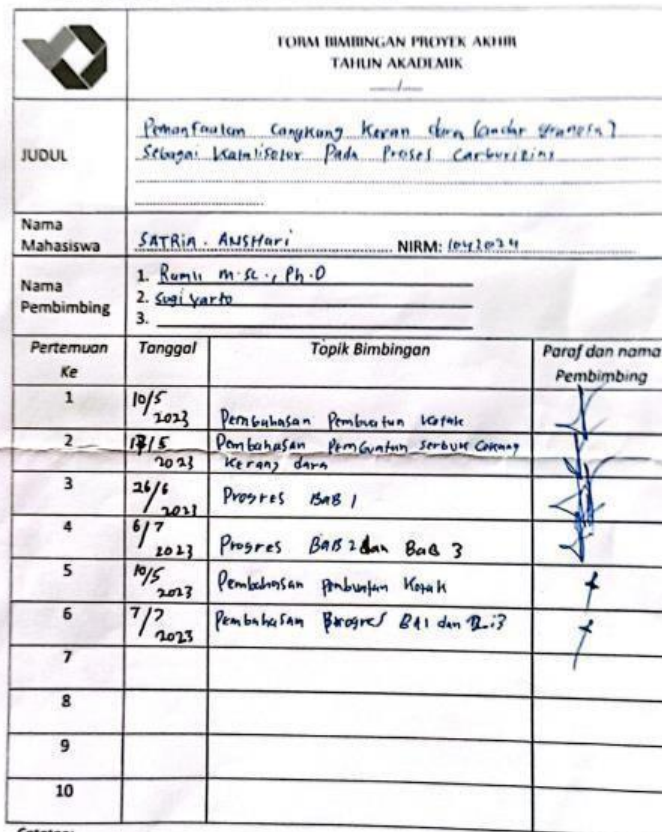 FORM BIMBINGAN PROYEK AKHIR
TAHUN AKADEMIK
___/___
JUDUL
Pemanfaatan Cangkang Keran dara (andar granosa)
Sebagai Katalisator Pada Proses Carburizing
Nama Mahasiswa
SATRIA . ANSHARi NIRM: 1042024
Nama Pembimbing
1. Ramli M.Sc., Ph.D
2. Sugiyarto
3.
Pertemuan Ke Tanggal Topik Bimbingan Paraf dan nama Pembimbing
1 10/5 2023 Pembahasan Pembuatan Kotak
2 17/5 2023 Pembahasan Pembuatan Serbuk
Kerang dara
3 26/6 2023 Progres BAB 1
4 6/7 2023 Progres BAB 2 dan BAB 3
5 10/5 2023 Pembahasan Pembuatan Kotak
6 7/7 2023 Pembahasan Progres BA1 dan
7
8
9
10
Catatan: